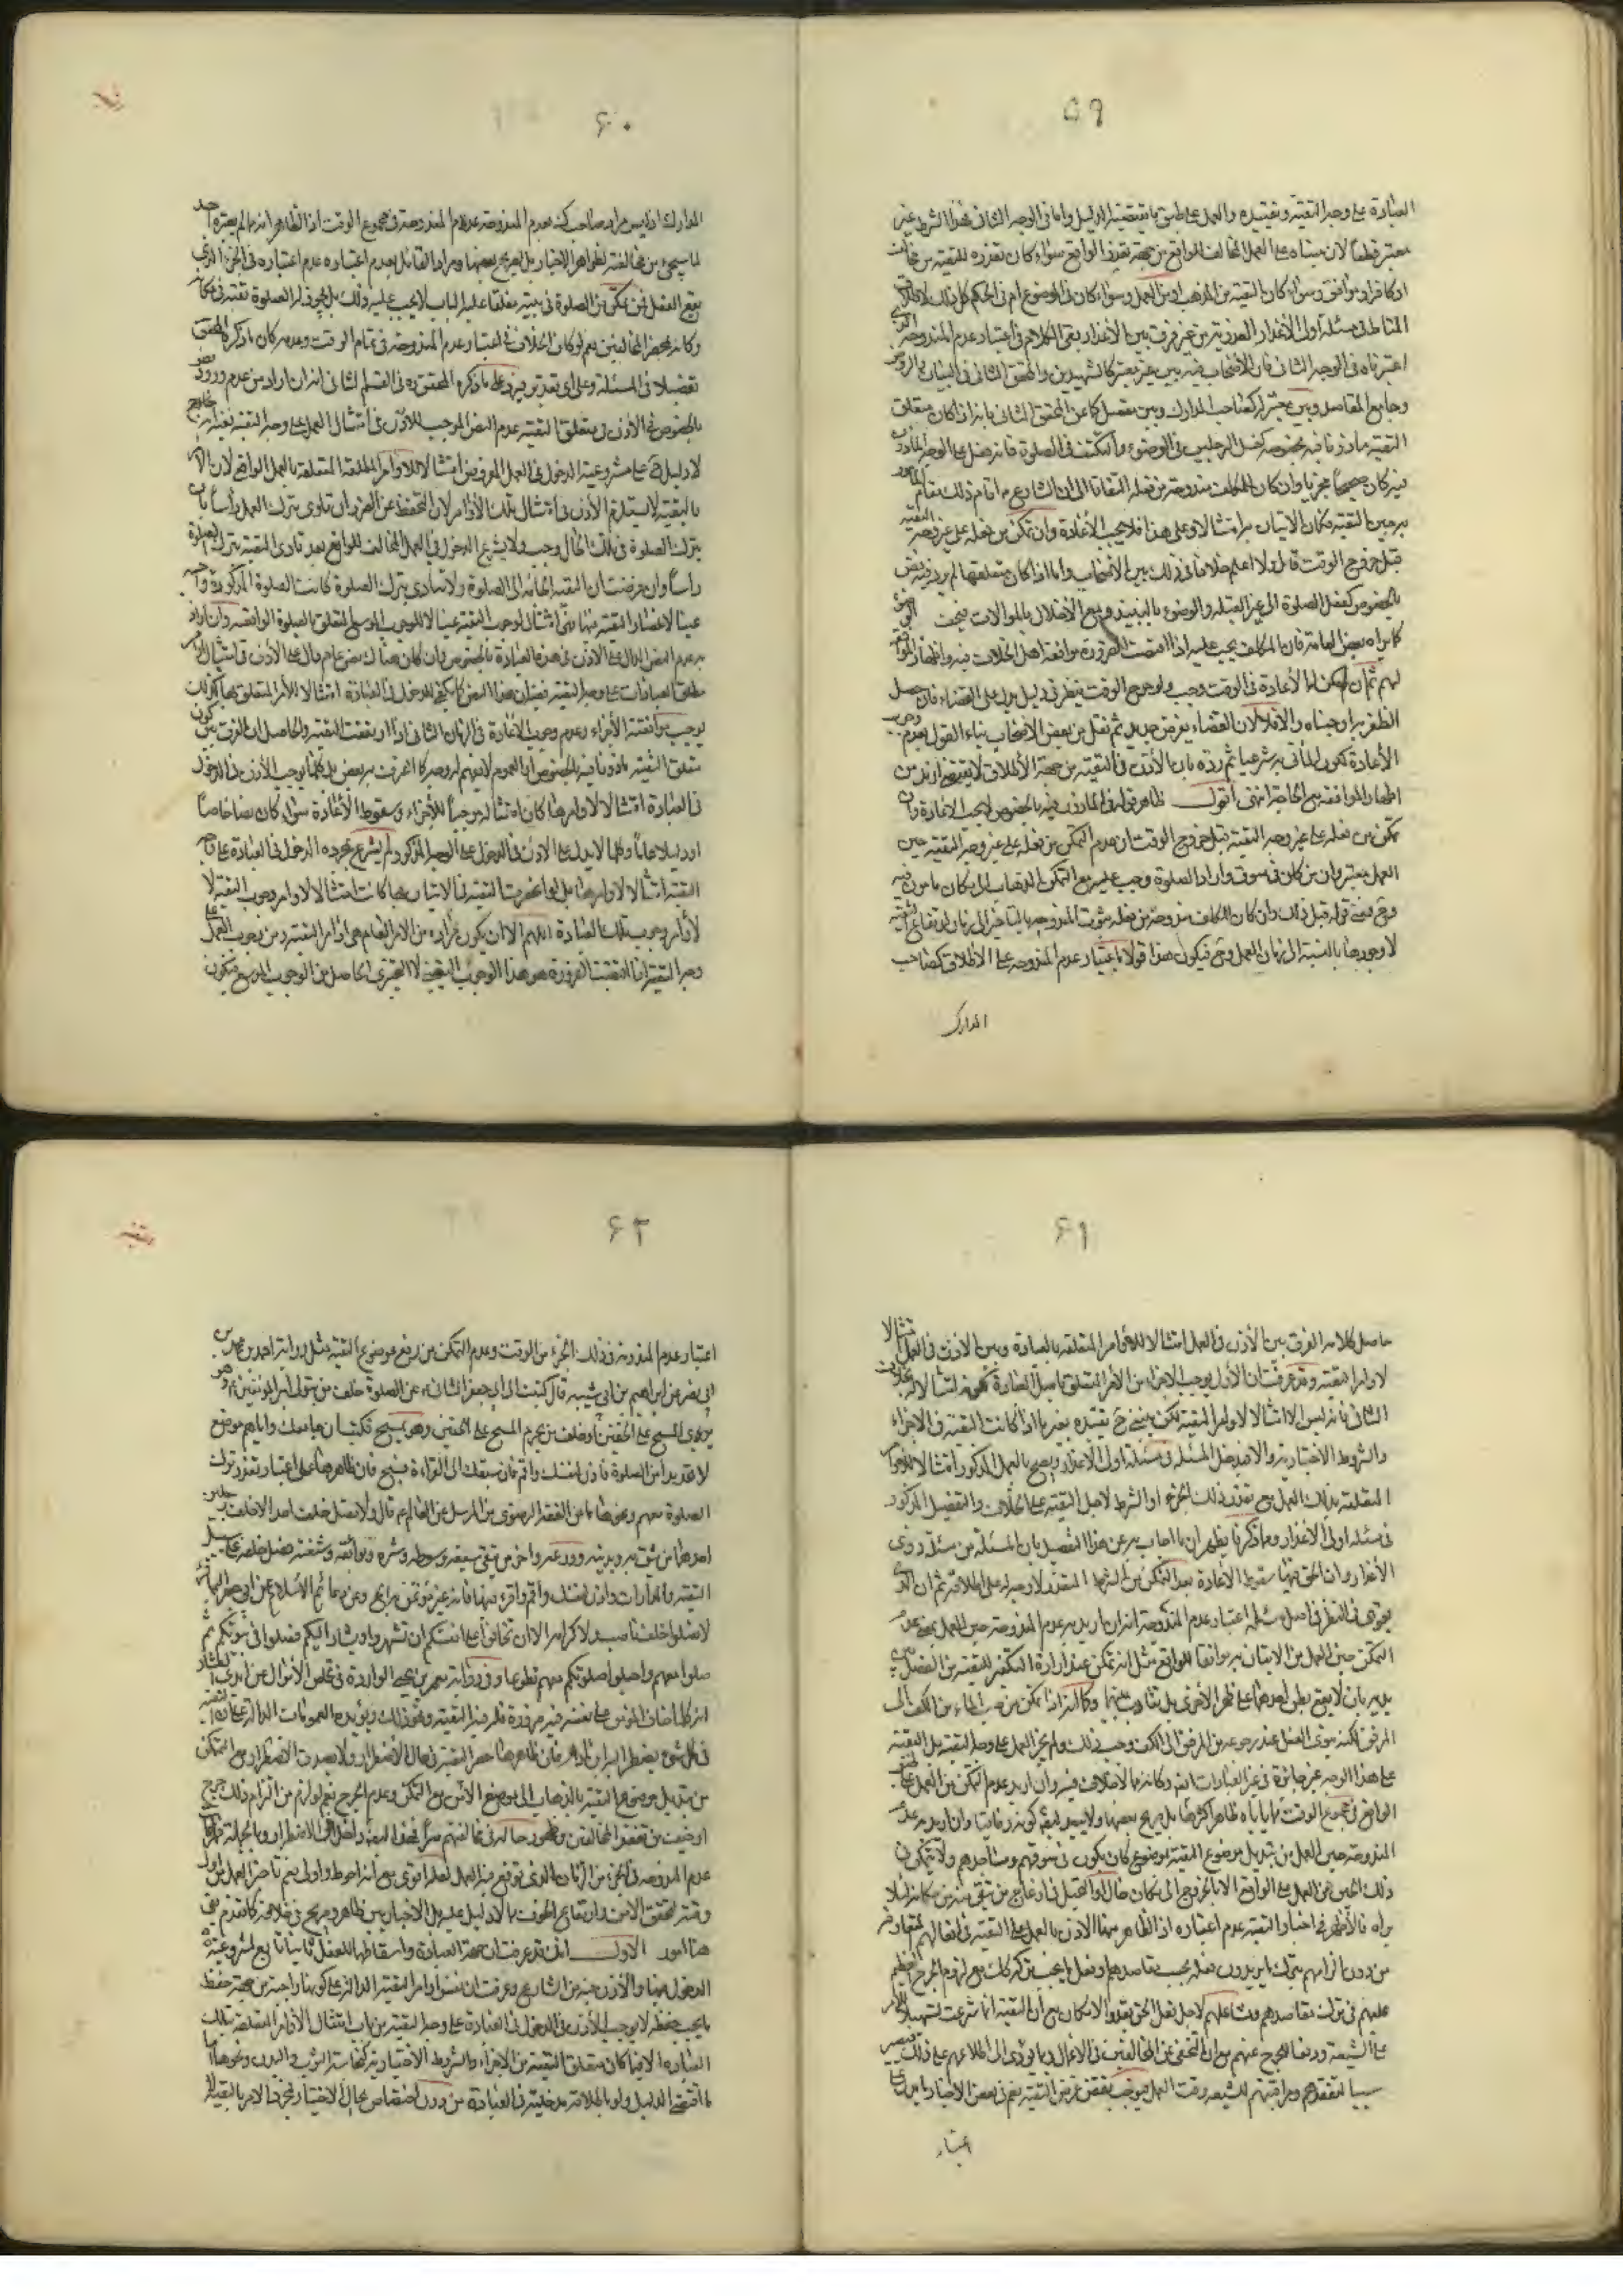 ٥٩
العبادة على وجه التقية وتقييده والعمل على طبق ما يقتضيه الدليل واما فى الوجه الثانى فهذا الشرط غير
معتبر قطعا لان مبناه على العمل المخالف للواقع من جهة تعذر الواقع سواء كان تعذره للتقية من مخالف
او كافر او موافق وسواء كان التقية من المذهب او من العمل وسواء كان فى الموضوع ام فى الحكم كل ذلك لان
المناط فى مسئلة اولى الاعذار العذر من غير فرق بين الاعذار بقى الكلام فى اعتبار عدم المندوحة الذى
اعتبرناه فى الوجه الثانى فان الاصحاب فيه بين غير معتبر كالشهيدين والمحقق الثانى فى البيان والروض
وجامع المقاصد وبين معتبر له كصاحب المدارك وبين مفصل كما عن المحقق الثانى بانه اذا كان متعلق
التقية ماذونا فيه بخصوصه كغسل الرجلين فى الوضوء والتكتف فى الصلوة فانه اذا فعل على الوجه الماذون
فيه كان صحيحا مجزيا وان كان للمكلف مندوحة من فعله التفاتا الى ان الشارع اقام ذلك مقام المامور
به حين التقية فكان الاتيان به امتثالا وعلى هذا فلا يجب الاعادة وان تمكن من فعله على غير وجه التقية
قبل خروج الوقت قال ولا اعلم خلافا فى ذلك بين الاصحاب واما اذا كان متعلقها لم يرد فيه نص
بالخصوص كفعل الصلوة الى غير القبلة والوضوء بالنبيذ ومع الاخلال بالموالات بحيث
كما يراه بعض العامة فان المكلف يجب عليه اذا اقتضت الضرورة موافقة اهل الخلاف فيه واظهار الموافقة
لهم ثم ان امكن له الاعادة فى الوقت وجب ولو خرج الوقت ينظر فى دليل يدل على القضاء فان حصل
الظفر به اوجبناه والا فلا لان القضاء بفرض جديد ثم نقل عن بعض الاصحاب بناء القول بعدم وجوب
الاعادة لكون الماتى به شرعيا ثم رده بان الاذن فى التقية من جهة الاطلاق لا يقتضى ازيد من
اظهار الموافقة مع الحاجة انتهى اقول ظاهر قوله فى الماذون فيه بالخصوص لا يجب الاعادة وان
تمكن من فعله على غير وجه التقية قبل خروج الوقت ان عدم التمكن من فعله على غير وجه التقية حين
العمل معتبر وان من كان فى سوق واراد الصلوة وجب عليه مع التمكن الذهاب الى مكان مامون فيه
وح فمعنى قوله قبل ذلك وان كان للمكلف مندوحة من فعله ثبوت المندوحة بالتاخير الى زمان ارتفاع التقية
لا وجودها بالنسبة الى زمان العمل وح فيكون هذا قولا باعتبار عدم المندوحة على الاطلاق كصاحب
المدارك
٦٠
المدارك اذ ليس مراد صاحب المدارك بعدم المندوحة عدم المندوحة فى مجموع الوقت اذ الظاهر انه مما لم يعتبره احد
لما سيجئ من مخالفته لظواهر الاخبار بل لصريح بعضها ومراد القائل بعدم اعتباره عدم اعتباره فى الجزء الذى
يقع الفعل فمن تمكن من الصلوة فى بيته مغلقا عليه الباب لا يجب عليه ذلك بل يجوز له الصلوة تقية فى مكانه
وكانه بمحضر المخالفين نعم لو كان الخلاف فى اعتبار عدم المندوحة فى تمام الوقت وعدمه كان ما ذكره المحقق
تفصيلا فى المسئلة وعلى اى تقدير فيرد على ما ذكره المحقق ره فى القسم الثانى انه ان اراد من عدم ورود نص
بالخصوص فى الاذن فى متعلق التقية عدم النص الموجب للاذن فى امتثال العمل على وجه التقية ففيه انه
لا دليل ح على مشروعية الدخول فى العمل المفروض امتثالا للاوامر المطلقة المتعلقة بالعمل الواقعى لان الامر
بالتقية لا يستلزم الاذن فى امتثال تلك الاوامر لان التحفظ عن الضرر ان تادى بترك العمل راسا بان
يترك الصلوة فى تلك الحال وجب ولا يشرع الدخول فى العمل المخالف للواقع بعد تادى التقية بترك الصلوة
راسا وان فرضت ان التقية الجأته الى الصلوة ولا تتادى بترك الصلوة كانت الصلوة المذكورة واجبة
عينا لانحصار التقية فيها فهى امتثال لوجوب التقية عينا لا للوجوب الموسع المتعلق بالصلوة الواقعية وان اراد
به عدم النص الدال على الاذن فى هذه العبادة بالخصوص وان كان هناك نص عام دال على الاذن فى امتثال اوامر
مطلق العبادات على وجه التقية ففيه ان هذا النص كما يكفى للدخول فى العبادة امتثالا للامر المتعلق بها كذلك
يوجب موافقته الاجزاء وعدم وجوب الاعادة فى الزمان الثانى اذا ارتفعت التقية والحاصل ان الفرق بين كون
متعلق التقية ماذونا فيه بالخصوص او بالعموم لا نفهم له وجها كما اعترف به بعض بل كلما يوجب الاذن فى الدخول
فى العبادة امتثالا لاوامرها كان امتثاله موجبا للاجزاء وسقوط الاعادة سواء كان نصا خاصا
او دليلا عاما وكلما لا يدل على الاذن فى الدخول على الوجه المذكور لم يشرع بمجرده الدخول فى العبادة على وجه
التقية امتثالا لاوامرها بل لو انحصرت التقية فى الاتيان بها كانت امتثالا لاوامر وجوب التقية لا
لاوامر وجوب تلك العبادة اللهم الا ان يكون مراده من الامر العام هى اوامر التقية ومن وجوب العمل على
وجه التقية اذا اقتضت الضرورة هو هذا الوجوب التعيينى لا التخييرى الحاصل من الوجوب الموسع فيكون
٦١
حاصل كلامه الفرق بين الاذن فى العمل امتثالا للاوامر المتعلقة بالعبادة وبين الاذن فى العمل امتثالا
لاوامر التقية وقد عرفت ان الاول يوجب الاجزاء عن الامر المتعلق باصل العبادة لكونه امتثالا له بخلاف
الثانى فانه ليس الا امتثالا لاوامر التقية لكن ينبغى ح تقييده بغير ما اذا كانت التقية فى الاجزاء
والشروط الاختيارية والا فتدخل المسئلة فى مسئلة اولى الاعذار ويصح بالعمل المذكور امتثالا للاوامر
المتعلقة بذلك العمل مع تعذر ذلك الجزء او الشرط لاجل التقية على الخلاف والتفصيل المذكور
فى مسئلة اولى الاعذار ومما ذكرنا يظهر ان ما اجاب به عن هذا التفصيل بان المسئلة من مسئلة ذوى
الاعذار وان الحق فيها سقوط الاعادة بعد التمكن من الشرط المتعذر لا وجه له على اطلاقه ثم ان الذى
يقوى فى النظر فى اصل مسئلة اعتبار عدم المندوحة انه ان اريد به عدم المندوحة حين العمل بمعنى عدم
التمكن حين العمل من الاتيان به موافقا للواقع مثل انه تمكن عند ارادة التكفير للتقية من الفصل بين
يديه بان لا يضع بطن احدهما على ظهر الاخرى بل يقارب بينهما وكما انه اذا تمكن من صب الماء من الكف الى
المرفق لكنه ينوى الغسل عند رجوعه من المرفق الى الكف وجب ذلك ولم يجز العمل على وجه التقية بل التقية
على هذا الوجه غير جائزة فى غير العبادات ايضا وكانه مما لا خلاف فيه وان اريد عدم التمكن من العمل على
الواقع فى مجموع الوقت فهو مما ياباه ظاهر اكثرها بل صريح بعضها ولا يبعد ايضا كونه وفاقيا وان اريد به عدم
المندوحة حين العمل من تبديل موضوع التقية بموضوع كان يكون فى سوقهم ومساجدهم ولا يتمكن فى
ذلك الحين من العمل على الواقع الا بالخروج الى مكان خال او التحيل فى ازعاج من يتقى منه عن مكانه لئلا
يراه فالاظهر فى اخبار التقية عدم اعتباره اذ الظاهر منها الاذن بالعمل على التقية فى افعالهم المتعارفة
من دون الزامهم بترك ما يريدون فعله بحسب مقاصدهم وفعل ما يجب تركه كذلك مع لزوم الحرج العظيم
عليهم فى ترك مقاصدهم ومشاغلهم لاجل فعل الحق بقدر الامكان مع ان التقية انما شرعت تسهيلا للامر
على الشيعة ورفعا للحرج عنهم مع ان التخفى عن المخالفين فى الاعمال ربما يؤدى الى اطلاعهم على ذلك فيصير
سببا لتفقدهم ومراقبتهم للشيعة وقت العمل فيوجب نقض غرض التقية نعم فى بعض الاخبار ما يدل على
اعتبار
٦٢
اعتبار عدم المندوحة فى ذلك الجزء من الوقت وعدم التمكن من رفع موضوع التقية مثل رواية احمد بن محمد بن
ابى نصر عن ابراهيم بن ابى شيبة قال كتبت الى ابى جعفر الثانى ع عن الصلوة خلف من يتولى امير المؤمنين وهو
يرى المسح على الخفين او خلف من يحرم المسح على الخفين وهو يمسح فكتب ان جامعك واياهم موضع
لا تجد بدا من الصلوة فاذن لنفسك واقم فان سبقك الى القراءة فسبح فان ظاهرها على اعتبار تعذر ترك
الصلوة معهم ونحوها ما عن الفقه الرضوى من المرسل عن العالم ع قال ولا تصل خلف احد الا خلف رجلين
احدهما من تثق به وبدينه وورعه واخر من تتقى سيفه وسوطه وشره وبوائقه وشنعته فصل خلفه على سبيل
التقية والمدارات واذن لنفسك واقم واقرء فيها فانه غير مؤتمن به الخ وعن دعائم الاسلام عن ابى جعفر الثانى
لا تصلوا خلف ناصب ولا كرامة الا ان تخافوا على انفسكم ان تشهروا ويشار اليكم فصلوا فى بيوتكم ثم
صلوا معهم واجعلوا صلوتكم معهم تطوعا وفى رواية معمر بن يحيى الواردة فى تخليص الاموال من ايدى العشار
انه كلما خاف المؤمن على نفسه فيه ضرورة فله فيه التقية ونحو ذلك ويؤيده العمومات الدالة على ان التقية
فى كل شئ يضطر اليه ابن ادم فان ظاهرها حصر التقية فى حال الاضطرار ولا يصدق الاضطرار مع التمكن
من تبديل موضوع التقية بالذهاب الى موضع الامن مع التمكن وعدم الحرج نعم لو لزم من التزام ذلك حرج
او ضيق من تفقد المخالفين وظهور حاله فى مخالفتهم سرا فهذا ايضا داخل فى الاضطرار وبالجملة فمراعاة
عدم المندوحة فى الجزء من الزمان الذى يوقع فيه العمل لعله اقوى مع انه احوط واولى نعم تاخير العمل عن اول
وقته لتحقق الامن وارتفاع الخوف مما لا دليل عليه بل الاخبار بين ظاهر وصريح فى خلافه كما تقدم بقى
هنا امور الاول انك قد عرفت ان صحة العبادة واسقاطها للفعل ثانيا تابع لمشروعية
الدخول فيها والاذن فيه من الشارع وعرفت ان نفس اوامر التقية الدالة على كونها واجبة من جهة حفظ
ما يجب حفظه لا يوجب الاذن فى الدخول فى العبادة على وجه التقية من باب امتثال الاوامر المتعلقة بتلك
العبادة الا فيما كان متعلق التقية من الاجزاء والشروط الاختيارية كنجاسة الثوب والبدن ونحوهما
مما اقتضى الدليل ولو باطلاقه مدخليته فى العبادة من دون اختصاص بحال الاختيار فمجرد الامر بالتقية لا